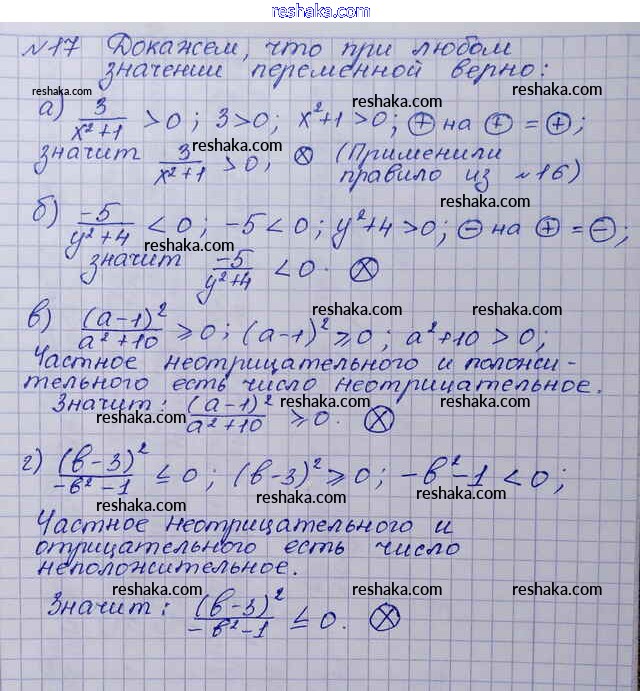 reshaka.com
№17 Докажем, что при любом
значении переменной верно:
reshaka.com reshaka.com
а) 3/(x²+1) > 0; 3>0; x²+1>0; ⊕ на ⊕ = ⊕;
значит 3/(x²+1) > 0, ⊗ (Применили
правило из №16)
reshaka.com reshaka.com
б) -5/(y²+4) < 0; -5<0; y²+4>0; ⊖ на ⊕ = ⊖;
reshaka.com reshaka.com
значит -5/(y²+4) < 0. ⊗
reshaka.com
в) (a-1)²/(a²+10) ⩾ 0; (a-1)² ⩾ 0; a²+10 > 0;
reshaka.com
Частное неотрицательного и положи-
тельного есть число неотрицательное.
reshaka.com reshaka.com
Значит: (a-1)²/(a²+10) ⩾ 0. ⊗
reshaka.com reshaka.com
г) (b-3)²/(-b²-1) ≤ 0; (b-3)² ⩾ 0; -b²-1 < 0;
reshaka.com reshaka.com
Частное неотрицательного и
отрицательного есть число
неположительное.
reshaka.com reshaka.com
Значит: (b-3)²/(-b²-1) ≤ 0. ⊗
reshaka.com reshaka.com